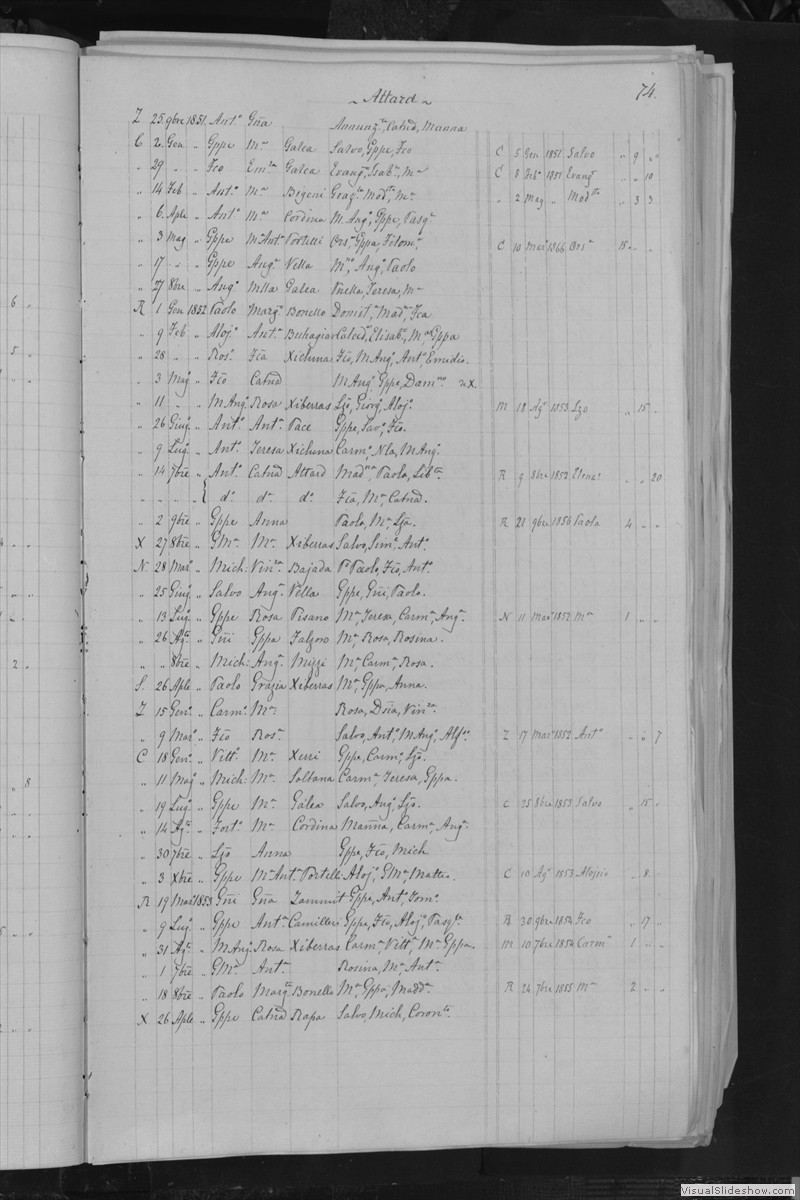 74.
~ Attard ~
Z 25 9bre 1851. Ant.º Gña Annunz.ª, Catñd, Manna
C 2 Gen „ Gppe M.ª Galea Salvo, Gppe, Fco C 5 Gen 1851 Salvo „ 9 „
„ 29 „ „ Fco Em.ª Galea Evang.ª, Isab.ª, M.ª C 8 Feb.º 1851 Evang.ª „ „ 10
„ 14 Feb „ Ant.º M.ª Bigeni Graz.ª Mad.ª, M.ª „ 2 Mag „ Mad.ª „ 3 3
„ 6 Aple „ Ant.º M.ª Cordina M. Ang.ª, Gppe, Pasq.ª
„ 3 Mag „ Gppe M.ª Ant.ª Portelli Ors.ª, Gppa, Filom.ª C 10 Mar.º 1866 Ors.ª 15 „ „
„ 17 „ „ Gppe Ang.ª Vella Ang.º, Paolo
„ 27 8bre „ Ang.º Mlla Galea Teresa, M.ª
R 1 Gen 1852 Paolo Marg.ª Bonello Donit.ª, Mad.ª, Fca
„ 9 Feb „ Aloj.º Ant.ª Buhagiar Catñd, Elisab.ª, M.ª Gppa
„ 28 „ „ Ros.º Fca Xicluna Fco, M. Ang.º, Ant.º, Emidio.
„ 3 Mag „ Fco Catñd M. Ang.º, Gppe, Dam.º
„ 11 „ „ M. Ang.º Rosa Xiberras Ljo, Giorg.º, Aloj.º M 18 Ag.º 1853 Ljo „ 15 „
„ 26 Giug.º „ Ant.º Ant.ª Pace Gppe, Sav.º, Fco.
„ 9 Lug.º „ Ant.º Teresa Xicluna Carm.º, Nla, M. Ang.º
„ 14 7bre „ Ant.º Catñd Attard Mad.ª, Paola, Lib.ª R 9 8bre 1852 Elena „ „ 20
„ „ „ „ { d.º d.ª d.º Fca, M.ª, Catñd.
„ 2 9bre „ Gppe Anna Paola, M.ª, Lja. R 21 9bre 1856 Paola 4 „ „
X 27 8bre „ GM.ª M.ª Xiberras Salvo, Sim.º, Ant.º
N 28 Mar.º „ Mich: Vin.ª Bajada P.º Paolo, Fco, Ant.º
„ 25 Giug.º „ Salvo Ang.ª Vella Gppe, Gñi, Paolo.
„ 13 Lug.º „ Gppe Rosa Pisano M.ª, Teresa, Carm.ª, Ang.ª N 11 Mar.º 1852 M.ª 1 „ „
„ 26 Ag.º „ Gñi Gppa Falzon M.ª, Rosa, Rosina.
„ „ 8bre „ Mich: Ang.ª Mizzi M.ª Carm.ª, Rosa.
S. 26 Aple „ Paolo Grazia Xiberras M.ª, Gppa, Anna.
Z 15 Gen.º „ Carm.º M.ª Rosa, Dña, Vin.ª
„ 9 Mar.º „ Fco Ros.ª Salvo, Ant.º, M. Ang.º, Alf.º Z 17 Mar.º 1852 Ant.º „ „ 7
C 18 Gen.º „ Vitt.º M.ª Xerri Gppe, Carm.º, Ljo.
„ 11 Mag.º „ Mich: M.ª Soltana Carm.ª, Teresa, Gppa.
„ 19 Lug.º „ Gppe M.ª Galea Salvo, Ang.º, Ljo. C 25 8bre 1853 Salvo „ 15 „
„ 14 Ag.º „ Fort.º M.ª Cordina Manna, Carm.ª, Ang.ª
„ 30 7bre „ Ljo Anna Gppe, Fco, Mich
„ 3 Xbre „ Gppe M.ª Ant.ª Portelli Aloj.º, GM.ª, Matteo. C 10 Ag.º 1853 Alojsio „ 8 „
R 19 Mar.º 1853 Gñi Gña Zammit Gppe, Ant.º, Tom.º
„ 9 Lug.º „ Gppe Ant.ª Camilleri Gppe, Fco, Aloj.º, Pasq.º R 20 9bre 1854 Fco „ 17 „
„ 31 Ag.º „ M. Ang.º Rosa Xiberras Carm.ª, Vitt.ª, M.ª Gppa. M 10 7bre 1854 Carm.ª 1 „ „
„ 1 7bre „ GM.ª Ant.ª Rosina, M.ª, Ant.ª
„ 18 8bre „ Paolo Marg.ª Bonello M.ª, Gppa, Madd.ª R 24 7bre 1855 M.ª 2 „ „
X 26 Aple „ Gppe Catñd Rapa Salvo, Mich, Coron.ª
6 „
5 „
2 „
„ 8
VisualSlideshow.com